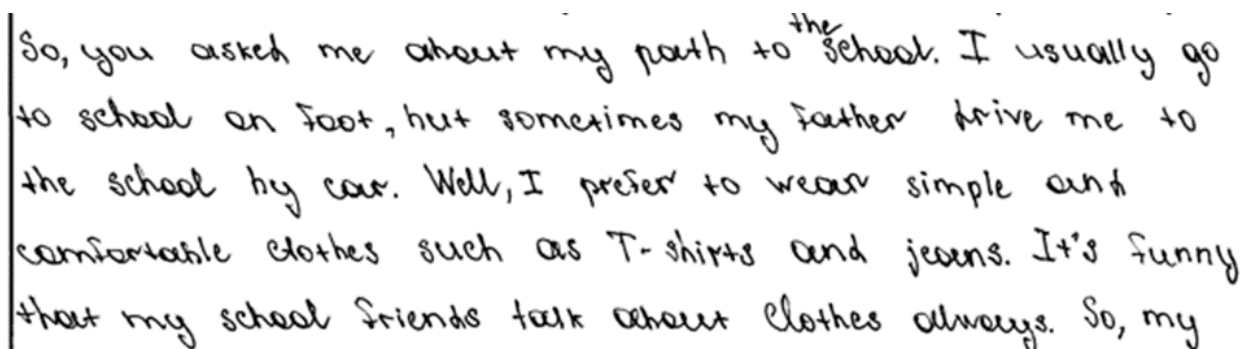 So, you asked me about my path to the school. I usually go
to school on foot, but sometimes my father drive me to
the school by car. Well, I prefer to wear simple and
comfortable clothes such as T-shirts and jeans. It's funny
that my school friends talk about clothes always. So, my